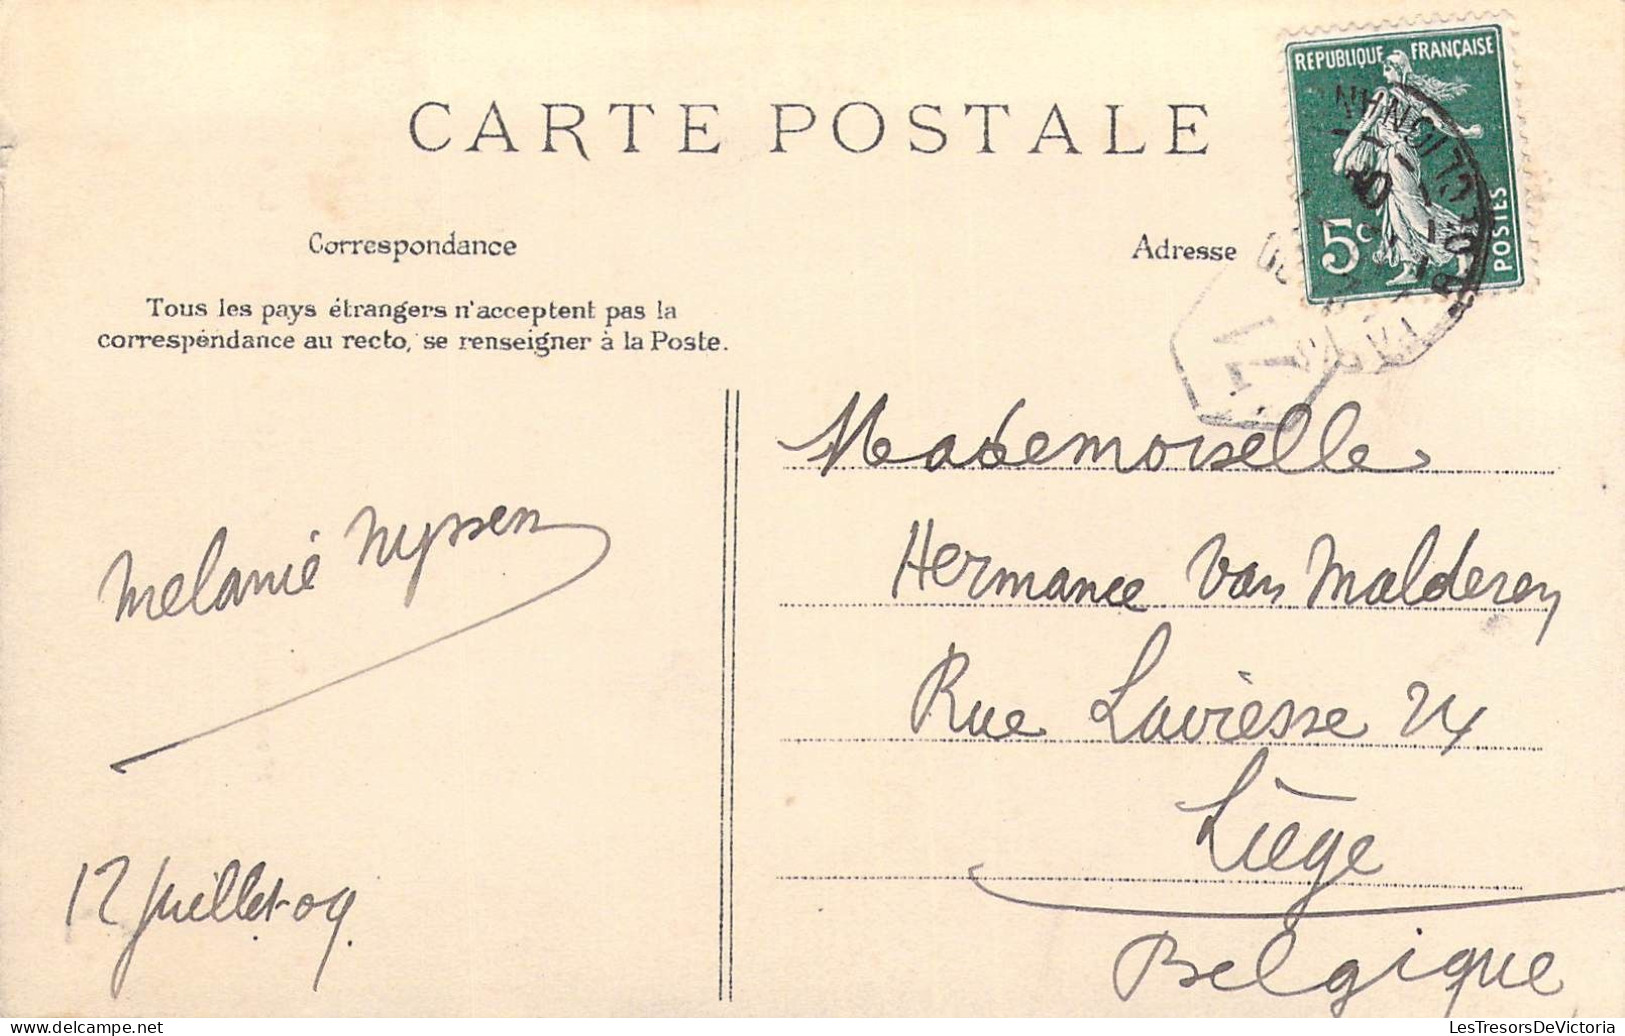 CARTE POSTALE
REPUBLIQUE FRANÇAISE
5c
POSTES
Correspondance
Adresse
Tous les pays étrangers n'acceptent pas la
correspondance au recto, se renseigner à la Poste.
Melanie Nyssen
12 Juillet-09
Mademoiselle
Hermance Van Malderen
Rue Laviesse 24
Liège
Belgique
LesTresorsDeVictoria
www.delcampe.net